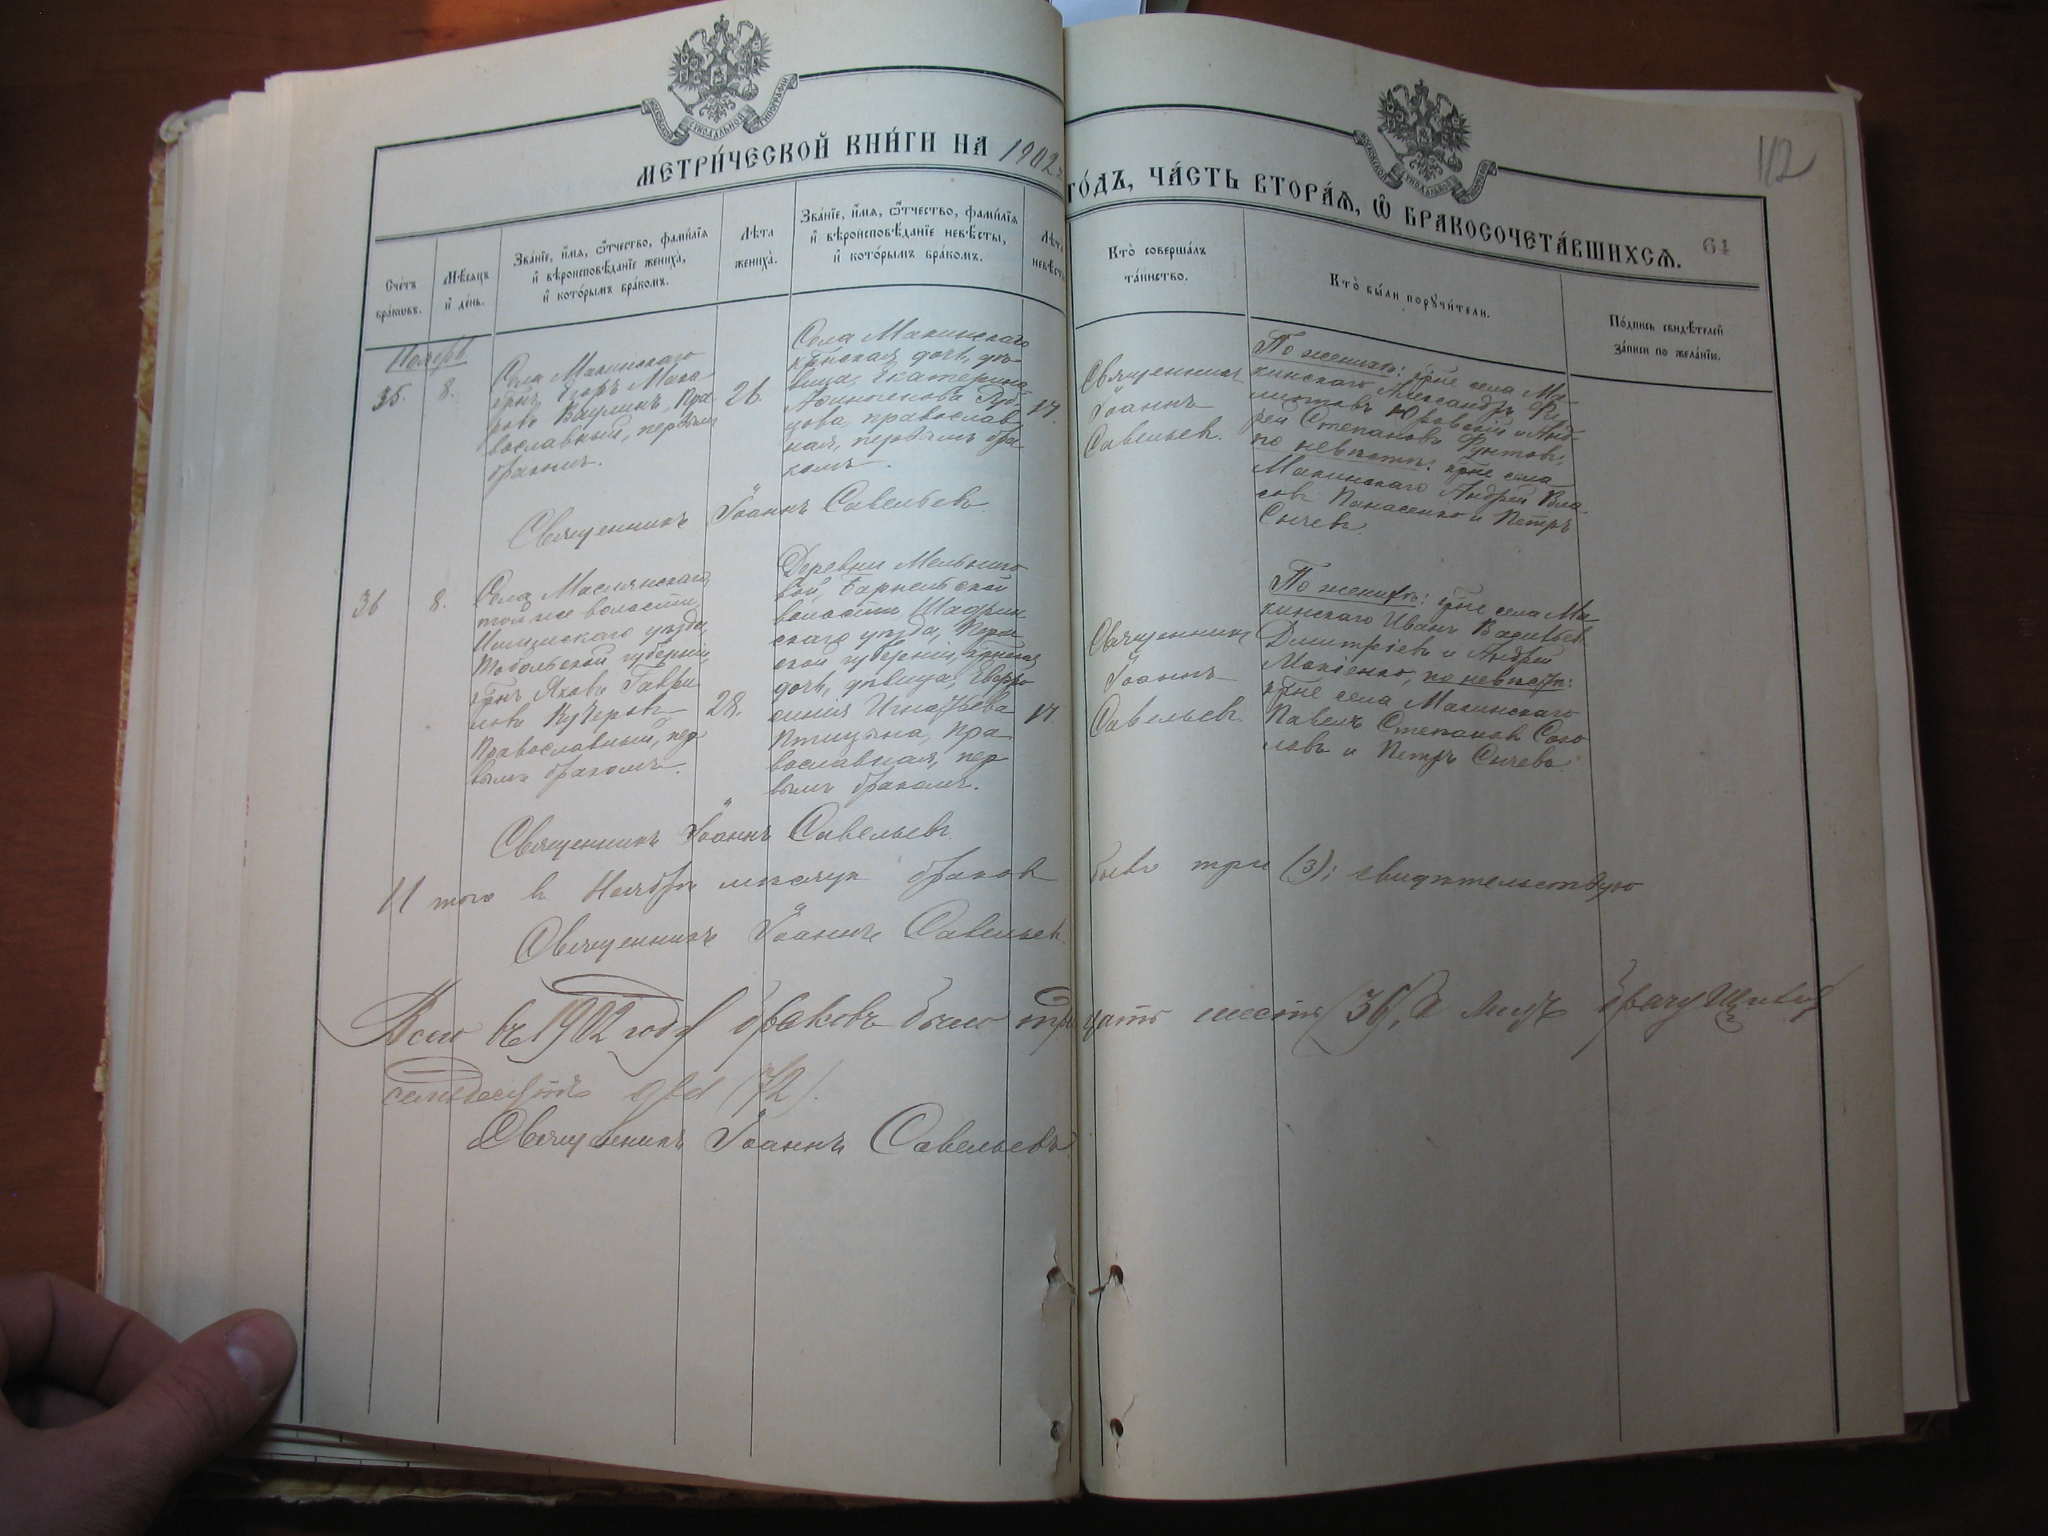 МЕТРИ́ЧЕСКОЙ КНИ́ГИ НА 1902
ГО́ДЪ, ЧА́СТЬ ВТОРА́Ѧ, Ѽ БРАКОСОЧЕТА́ВШИХСѦ.
112
64
Сче́тъ бра́кѡвъ.
Мѣ́сѧцъ и҆ де́нь.
Зва́нїе, и҆́мѧ, ѻ҆́тчество, фамѝлїѧ и҆ вѣроисповѣ́данїе жениха̀, и҆ кото́рымъ бра́комъ.
Лѣ́та жениха̀.
Зва́нїе, и҆́мѧ, ѻ҆́тчество, фамѝлїѧ и҆ вѣроисповѣ́данїе невѣ́сты, и҆ кото́рымъ бра́комъ.
Лѣ́та невѣ́сты
Кто̀ соверша́лъ та́инство.
Кто̀ бы́ли порꙋчи́тели.
По́дпись свидѣ́телей за́писи по жела́нїю.
Ноябрь
35.
8.
Села Макинскаго
крнъ Егоръ Мака
ровъ Ваулинъ, Пра
вославный, первымъ
бракомъ.
26.
Села Макинскаго
крнская дочь, дѣ-
вица, Екатерина
православ
ная, первымъ бра
комъ.
17.
Священникъ
Іоаннъ
Савельевъ.
По женихѣ: крне села Ма-
кинскаго Александръ Фи-
и Анд-
рей Степановъ
по невѣстѣ: крне села
Макинскаго Андрей Вла-
совъ Панасенко и Петръ
Сычевъ.
Священникъ Іоаннъ Савельевъ
36
8.
Села Маслянскаго,
той же волости,
Ишимскаго уѣзда,
Тобольской губерніи,
крнъ Яковъ Гаври
ловъ Кучеровъ
Православный, пер
вымъ бракомъ.
28.
Деревни Мельнико
вой, Барневской
волости, Шадрин
скаго уѣзда, Перм
ской губерніи, крнская
дочь, дѣвица, Евфро
синія Игнатьева
Птицына, Пра
вославная, пер
вымъ бракомъ.
17.
Священникъ
Іоаннъ
Савельевъ
По женихѣ: крне села Ма
кинскаго Иванъ Васильевъ
Дмитріевъ и Андрей
Мокіенко, по невѣстѣ:
крне села Макинскаго
Павелъ Степановъ Соко
ловъ и Петръ Сычевъ.
Священникъ Іоаннъ Савельевъ
Итого въ Ноябрѣ мѣсяцѣ браковъ было три (3); свидѣтельствую
Священникъ Іоаннъ Савельевъ
Всего въ 1902 году браковъ было тридцать шесть (36), а лицъ
семьдесятъ два (72).
Священникъ Іоаннъ Савельевъ